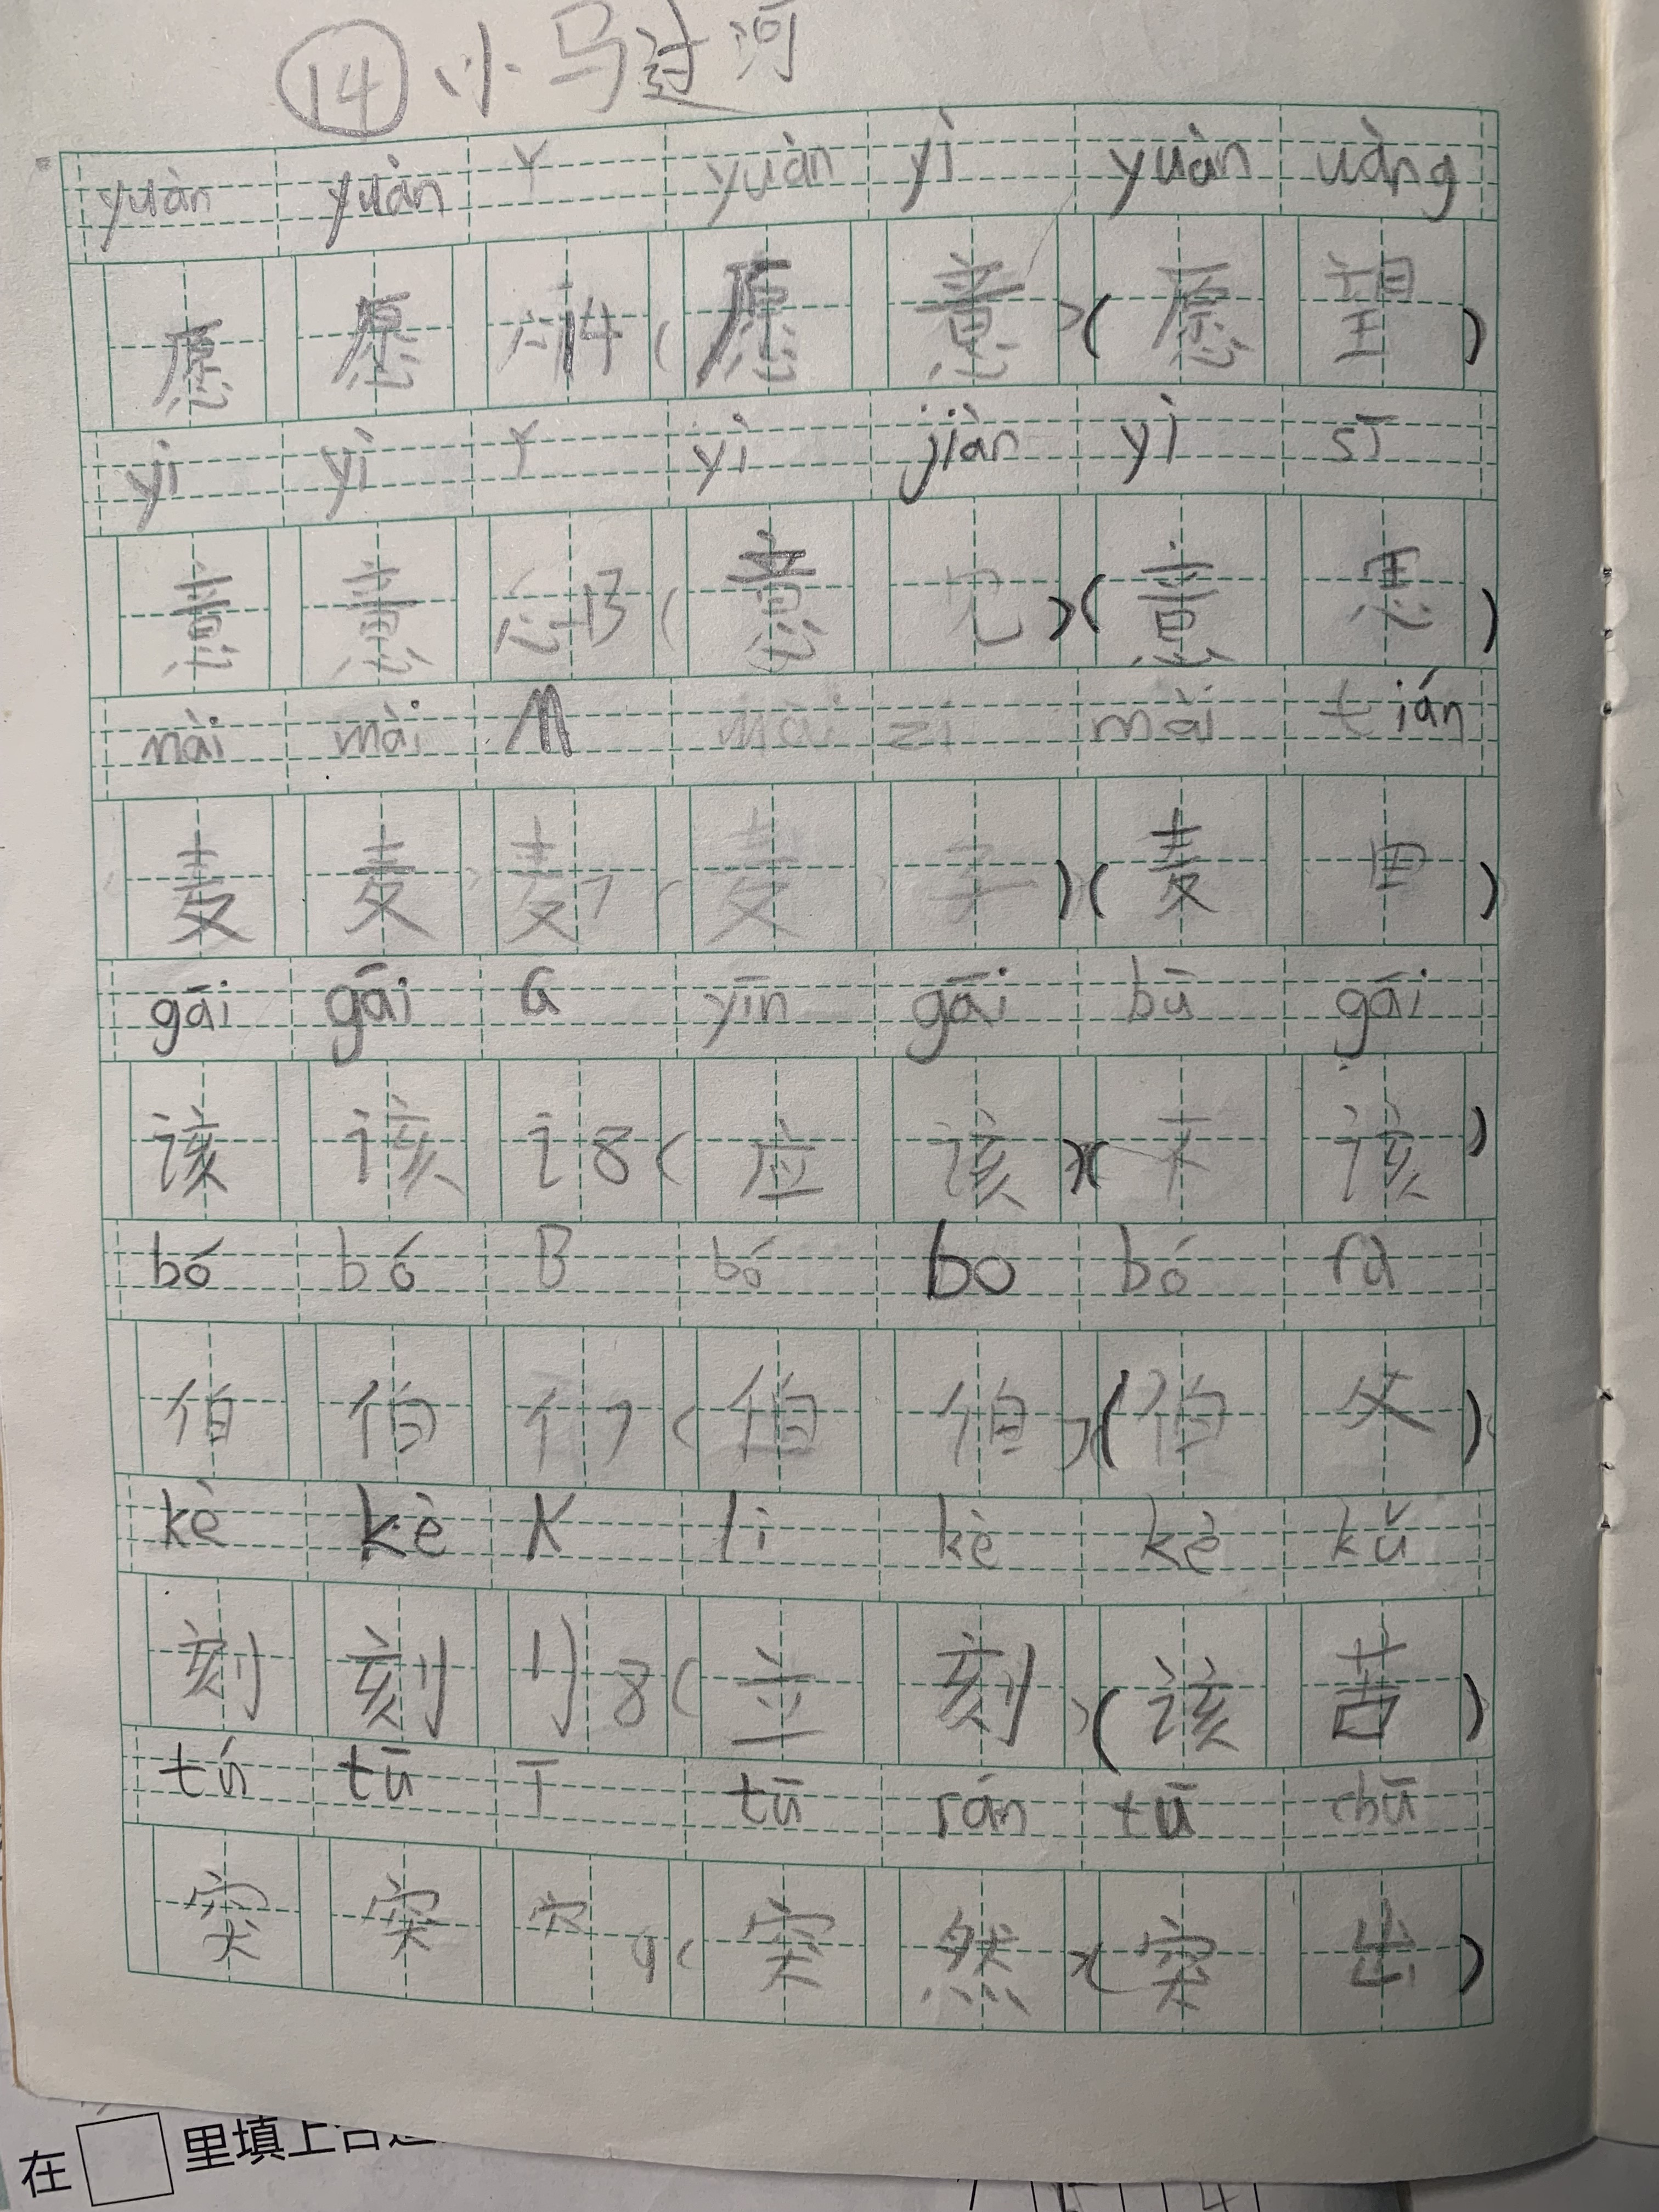 ⑭ 小马过河
yuàn yuàn Y yuàn yì yuàn uàng
愿 愿 心14 (愿 意)(愿 望)
yì yì Y yì jiàn yì sī
意 意 心13 (意 见)(意 思)
mài mài M mài zi mài tián
麦 麦 麦7 (麦 子)(麦 田)
gāi gāi G yīn gāi bù gāi
该 该 讠8 (应 该)(不 该)
bó bó B bó bo bó fù
伯 伯 亻7 (伯 伯)(伯 父)
kè kè K lì kè kè kǔ
刻 刻 刂8 (立 刻)(该 苦)
tú tū T tū rán tū chū
突 突 穴9 (突 然)(突 出)
在□里填上合适